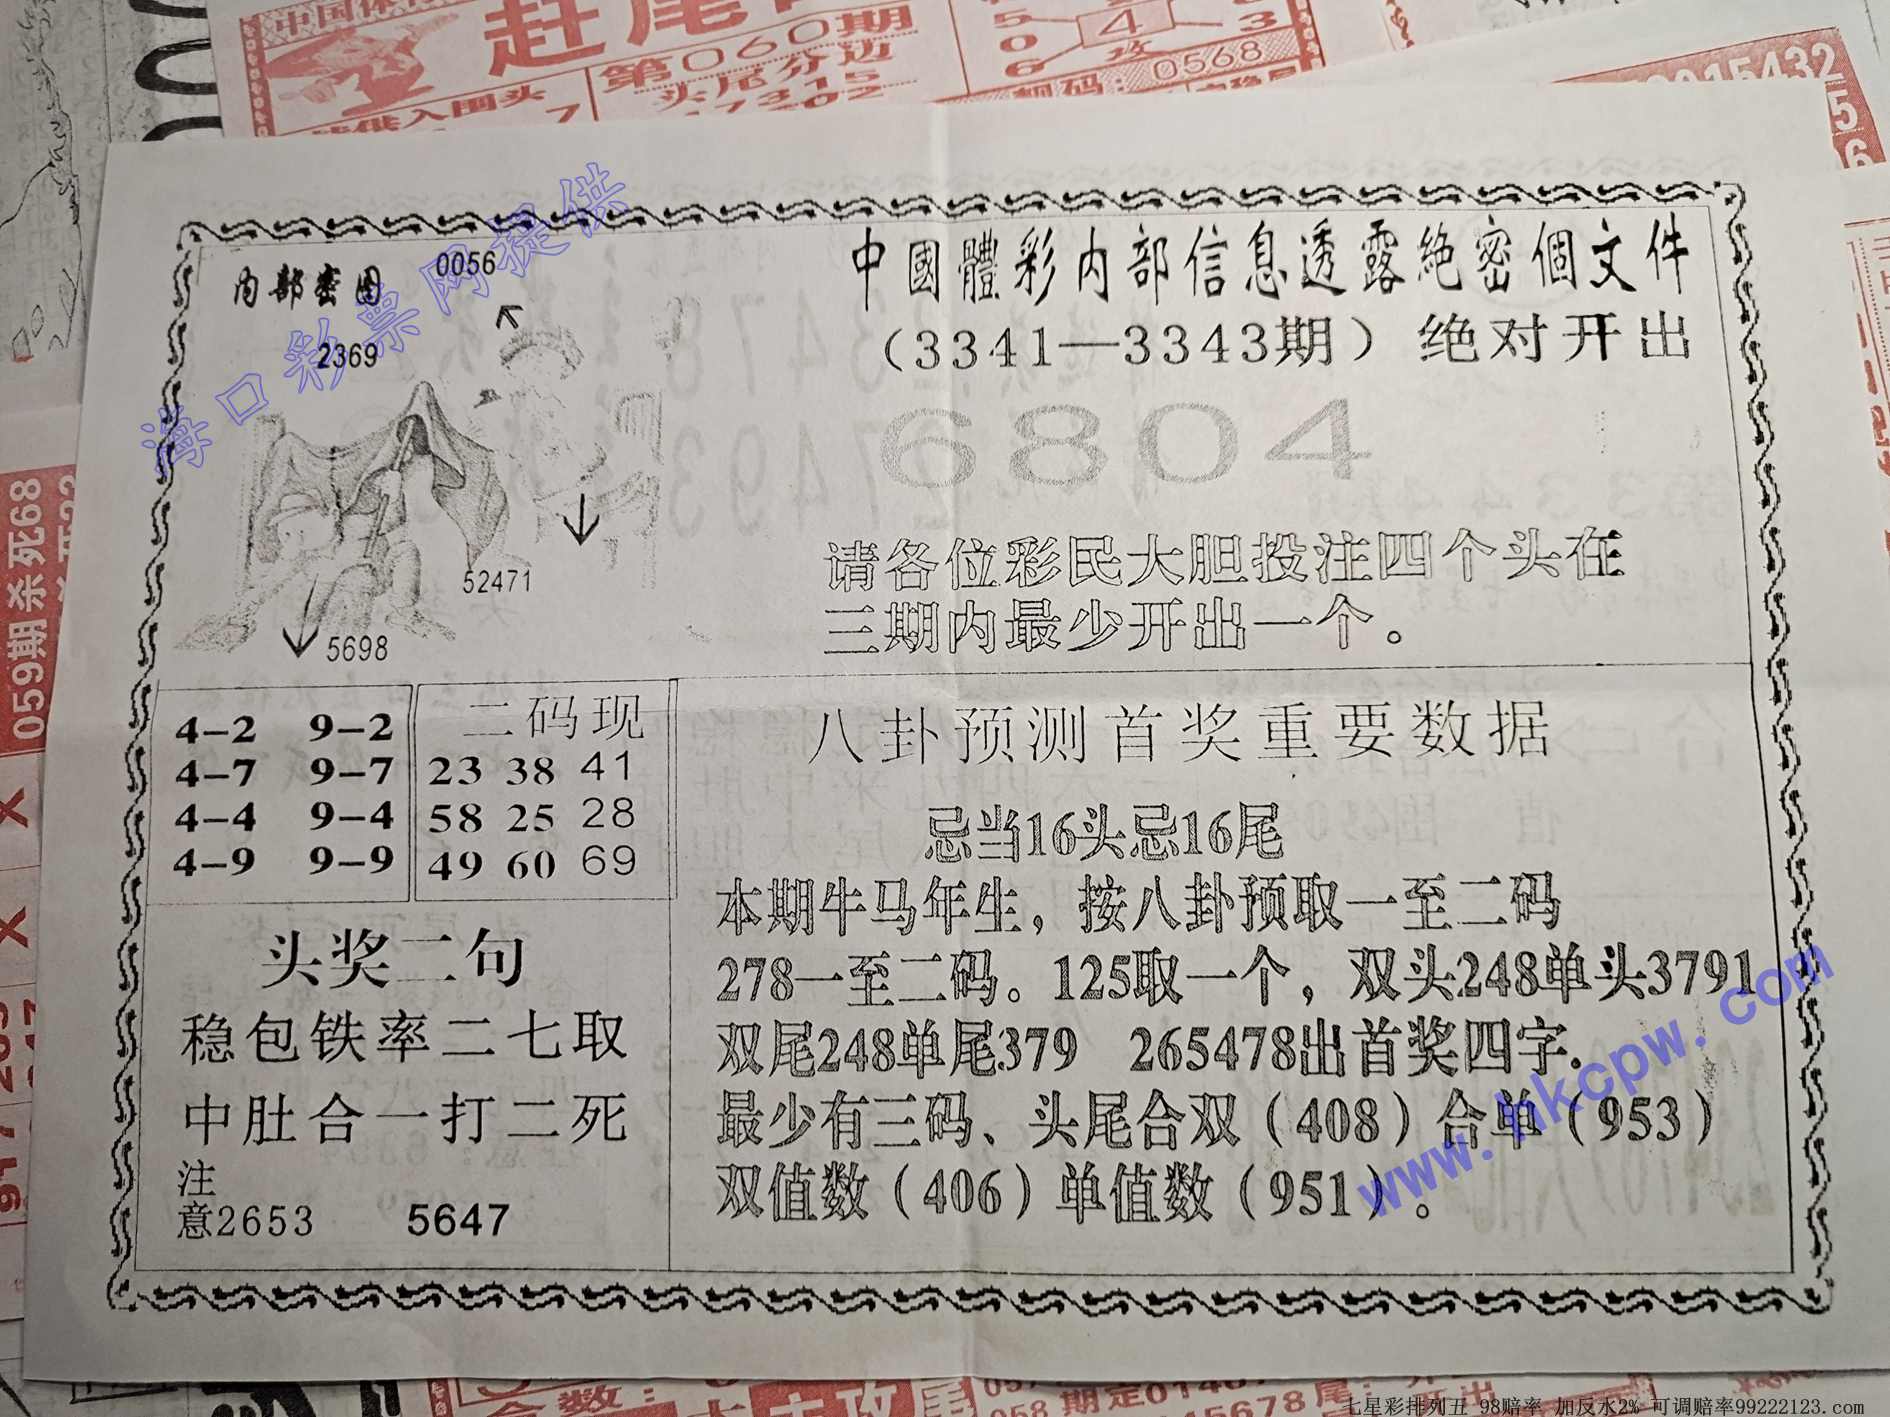 第060期
头尾分边
7315
靓码：0568
059期杀死68
海口彩票网提供
内部密图
0056
2369
52471
5698
中國體彩内部信息透露絶密個文件
（3341—3343期）绝对开出
6804
请各位彩民大胆投注四个头在
三期内最少开出一个。
4-2 9-2
4-7 9-7
4-4 9-4
4-9 9-9
二码现
23 38 41
58 25 28
49 60 69
头奖二句
稳包铁率二七取
中肚合一打二死
注
意2653 5647
八卦预测首奖重要数据
忌当16头忌16尾
本期牛马年生，按八卦预取一至二码
278一至二码。125取一个，双头248单头3791
双尾248单尾379 265478出首奖四字.
最少有三码、头尾合双（408）合单（953）
双值数（406）单值数（951）。
www.hkcpw.com
七星彩排列五 98赔率 加反水2% 可调赔率99222123.com